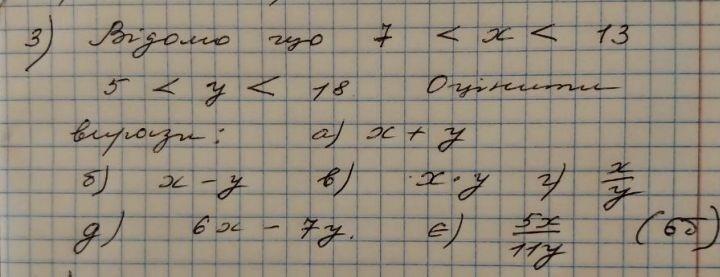 3) Відомо що 7 < x < 13
5 < y < 18 Оцінити
вирази: а) x + y
б) x - y в) x · y г) x/y
д) 6x - 7y. є) 5x/11y (6б)